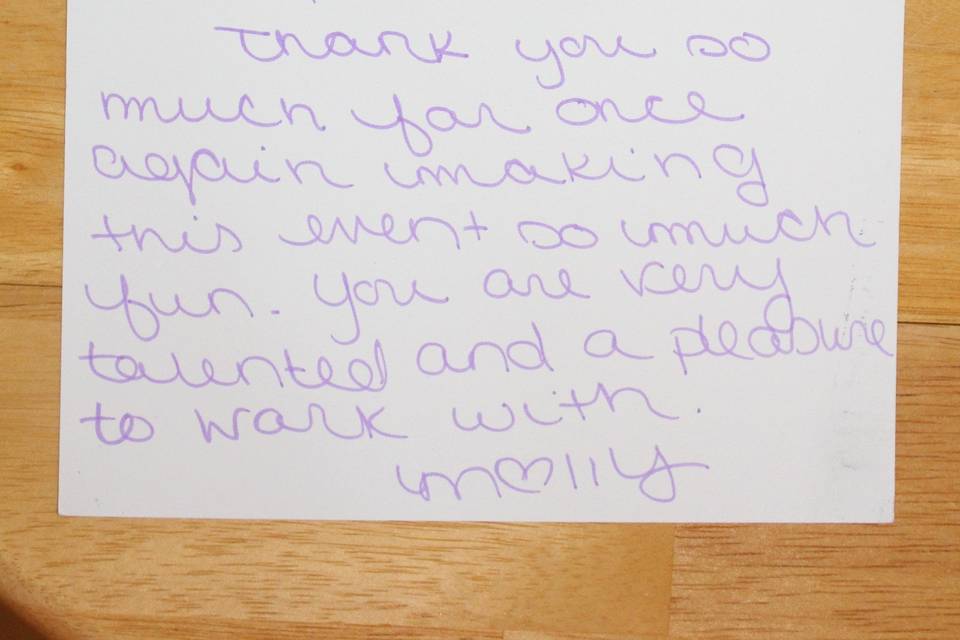 Thank you so
much for once
again making
this event so much
fun. You are very
talented and a pleasure
to work with.
Molly